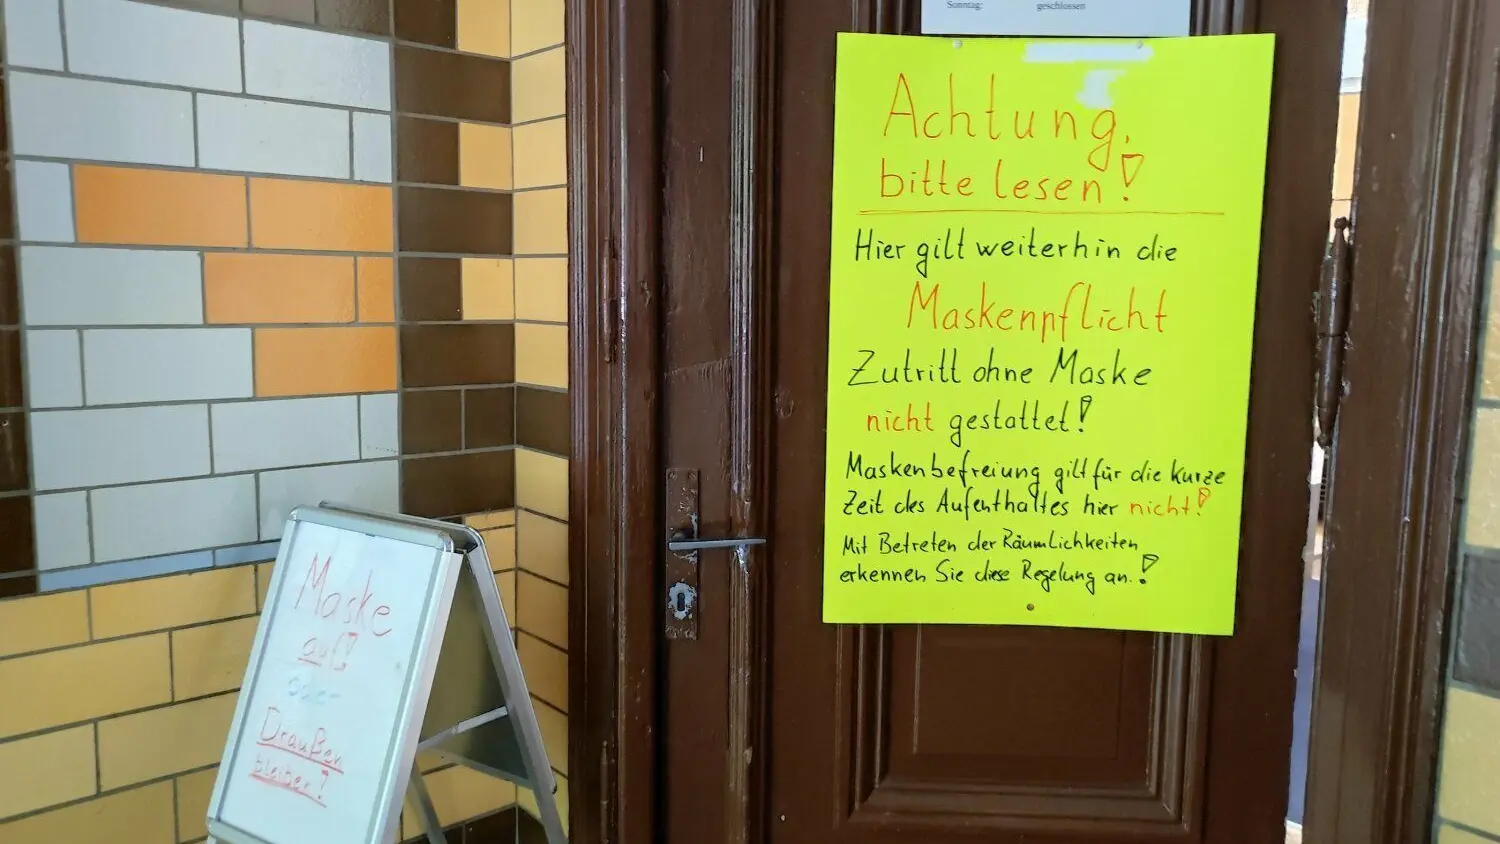 Sonntag: geschlossen
Achtung,
bitte lesen!
Hier gilt weiterhin die
Maskenpflicht
Zutritt ohne Maske
nicht gestattet!
Maskenbefreiung gilt für die kurze
Zeit des Aufenthaltes hier nicht!
Mit Betreten der Räumlichkeiten
erkennen Sie diese Regelung an.!
Maske
auf!
oder
Draußen
bleiben!